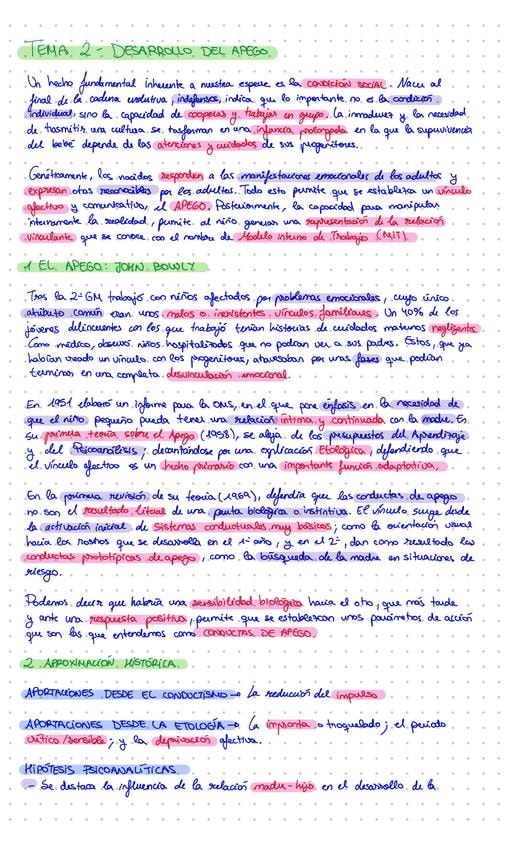 TEMA 2 - DESARROLLO DEL APEGO
Un hecho fundamental inherente a nuestra especie es la CONDICIÓN SOCIAL. Nacer al
final de la cadena evolutiva, indefensos, indica que lo importante no es la condición
individual, sino la capacidad de cooperar y trabajar en grupo. La inmadurez y la necesidad
de trasmitir una cultura se trasforman en una infancia prolongada en la que la supervivencia
del bebé depende de las atenciones y cuidados de sus progenitores.
Genéticamente, los nacidos responden a las manifestaciones emocionales de los adultos y
expresan otras reconocibles por los adultos. Todo esto permite que se establezca un vínculo
afectivo y comunicativo, el APEGO. Posteriormente, la capacidad para manipular
internamente la realidad, permite al niño generar una representación de la relación
vinculante que se conoce con el nombre de Modelo interno de Trabajo (MIT).
1 EL APEGO: JOHN BOWLY
Tras la 2ª GM trabajó con niños afectados por problemas emocionales, cuyo único
atributo común eran unos malos o inexistentes vínculos familiares. Un 40% de los
jóvenes delincuentes con los que trabajó tenían historias de cuidados maternos negligentes.
Como médico, observó niños hospitalizados que no podían ver a sus padres. Estos, que ya
habían creado un vínculo con los progenitores, atravesaban por unas fases que podían
terminar en una completa desvinculación emocional.
En 1951 elaboró un informe para la OMS, en el que pone énfasis en la necesidad de
que el niño pequeño pueda tener una relación íntima y continuada con la madre. En
su primera teoría sobre el Apego (1958), se aleja de los presupuestos del Aprendizaje
y del Psicoanálisis; decantándose por una explicación Etológica, defendiendo que
el vínculo afectivo es un hecho primario con una importante función adaptativa.
En la primera revisión de su teoría (1969), defendía que las conductas de apego
no son el resultado literal de una pauta biológica o instintiva. El vínculo surge desde
la activación inicial de sistemas conductuales muy básicos; como la orientación visual
hacia los rostros que se desarrolla en el 1er año, y en el 2º, dan como resultado las
conductas prototípicas de apego, como la búsqueda de la madre en situaciones de
riesgo.
Podemos decir que habría una sensibilidad biológica hacia el otro, que más tarde
y ante una respuesta positiva, permite que se establezcan unos parámetros de acción
que son los que entendemos como CONDUCTAS DE APEGO.
2 APROXIMACIÓN HISTÓRICA
APORTACIONES DESDE EL CONDUCTISMO → La reducción del impulso
APORTACIONES DESDE LA ETOLOGÍA → La impronta o troquelado; el periodo
crítico/sensible; y la deprivación afectiva.
HIPÓTESIS PSICOANALÍTICAS
- Se destaca la influencia de la relación madre-hijo en el desarrollo de la